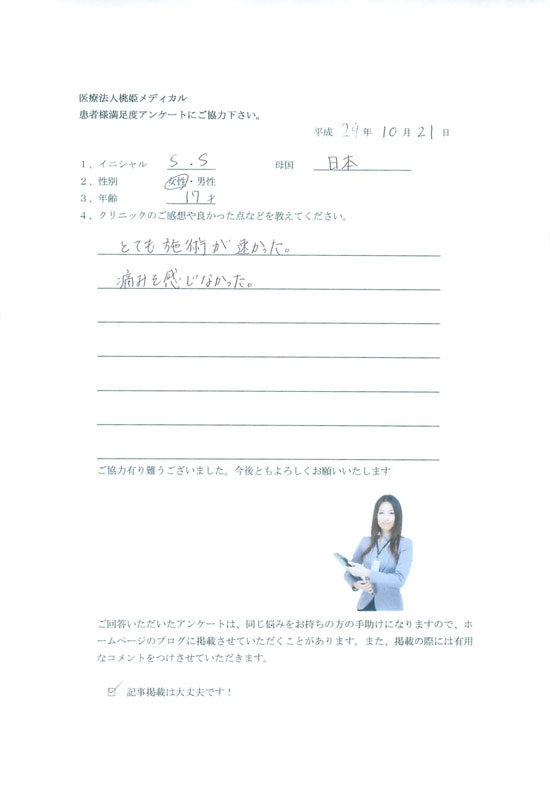 医療法人桃姫メディカル
患者様満足度アンケートにご協力下さい。
平成 29年 10月 21日
1、イニシャル S.S 母国 日本
2、性別 女性・男性
3、年齢 17才
4、クリニックのご感想や良かった点などを教えてください。
とても施術が速かった。
痛みを感じなかった。
ご協力有り難うございました。今後ともよろしくお願いいたします
ご回答いただいたアンケートは、同じ悩みをお持ちの方の手助けになりますので、ホ
ームページのブログに掲載させていただくことがあります。また、掲載の際には有用
なコメントをつけさせていただきます。
☑ 記事掲載は大丈夫です！